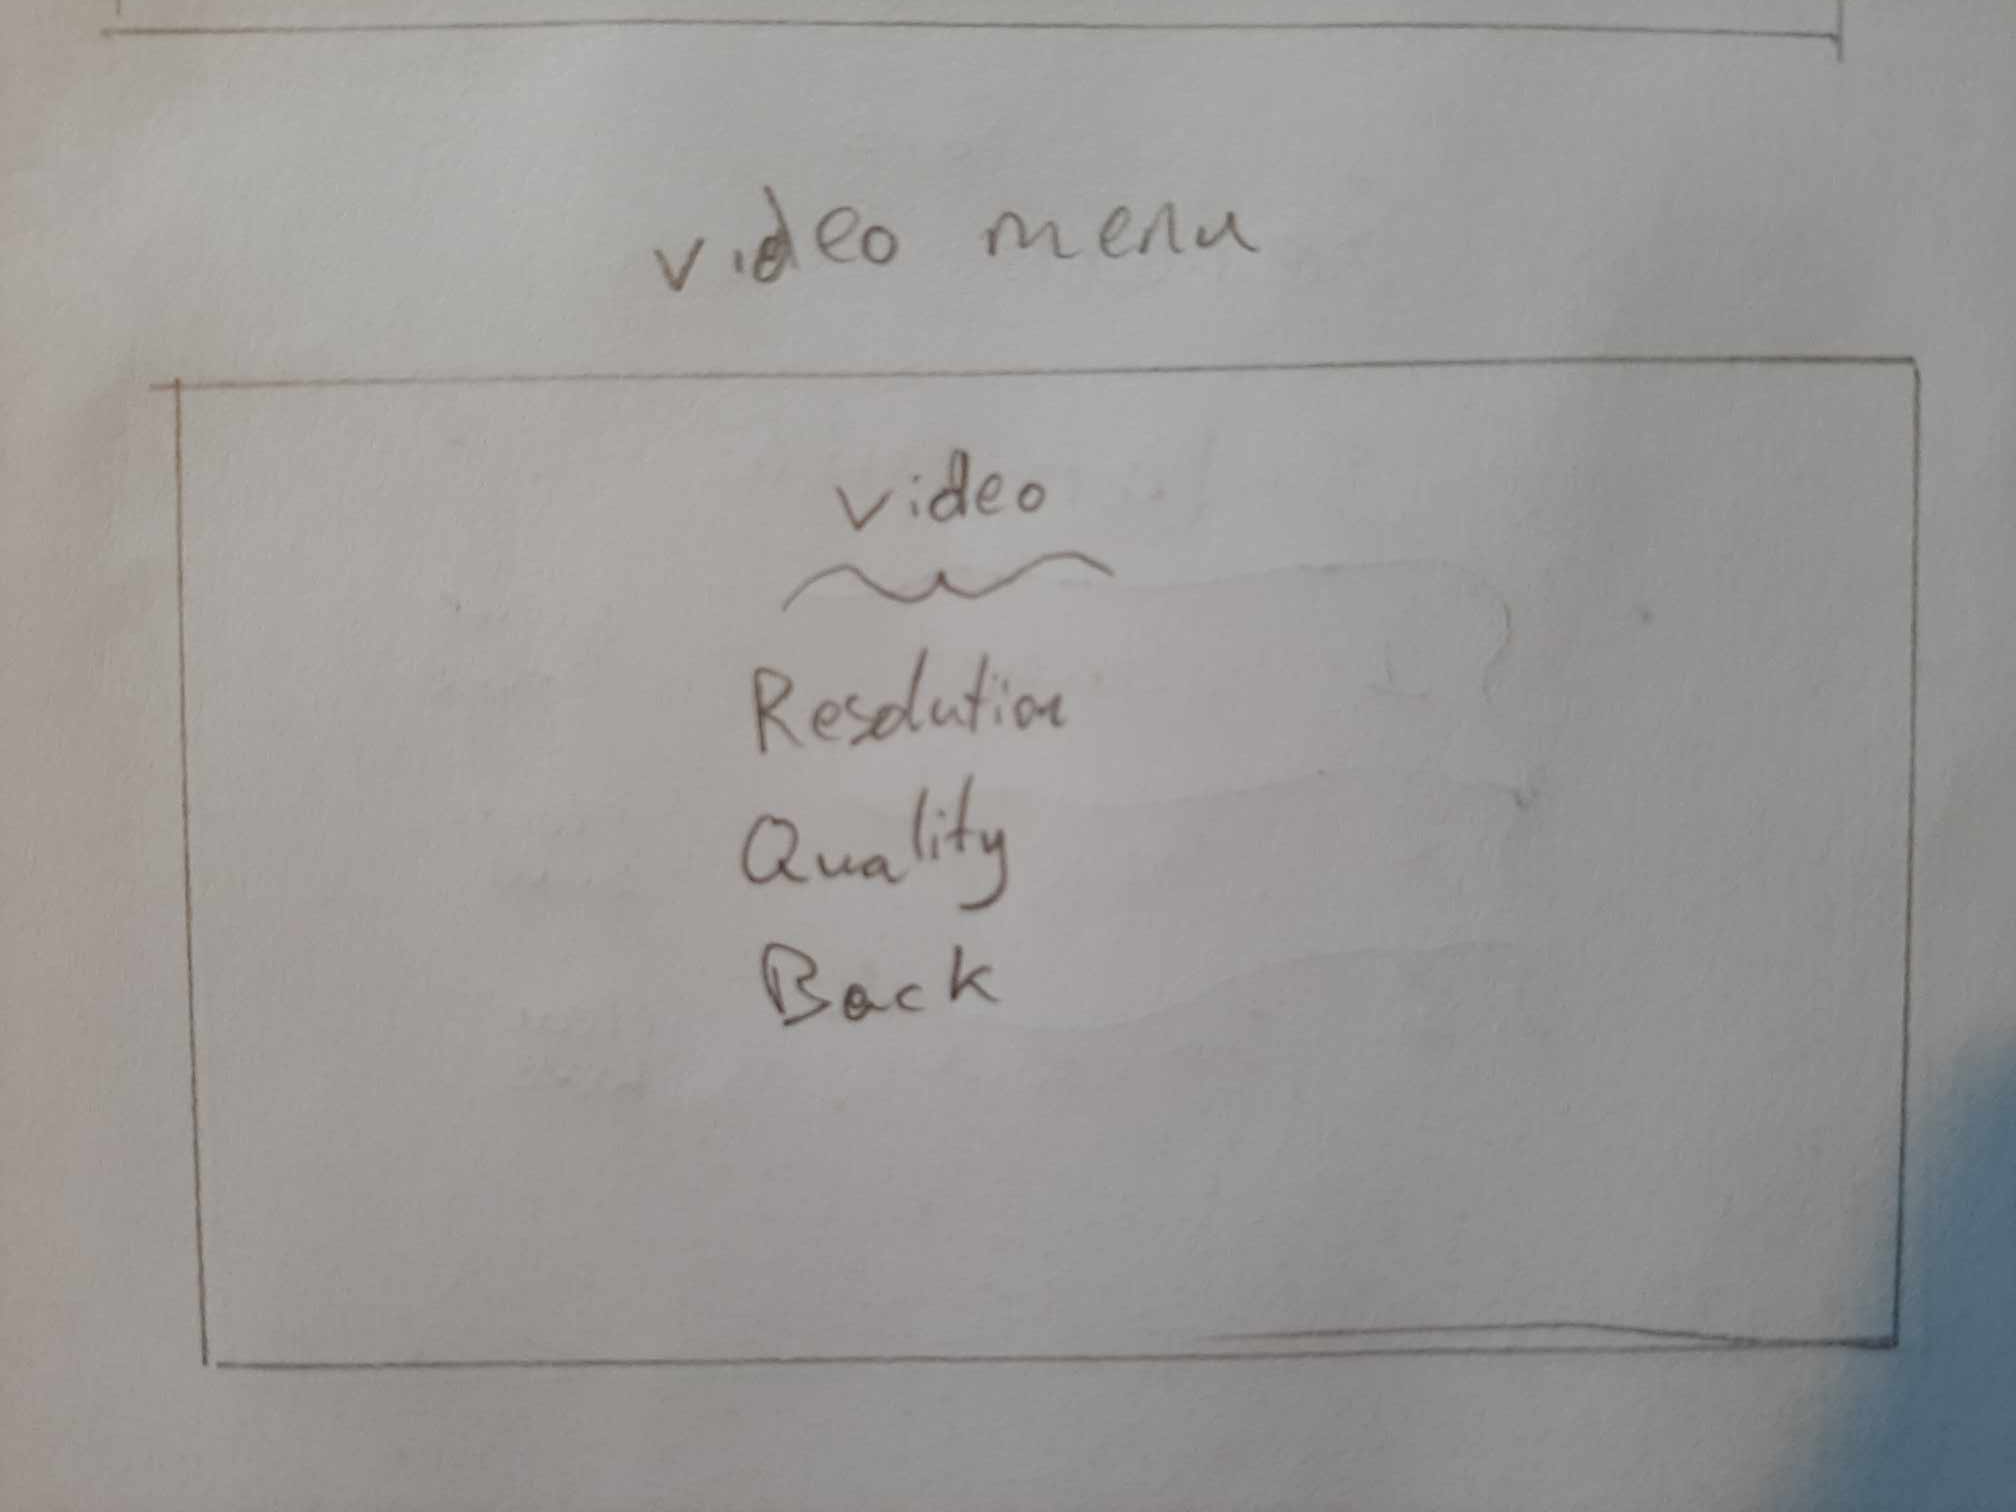 video menu
video
Resolution
Quality
Back